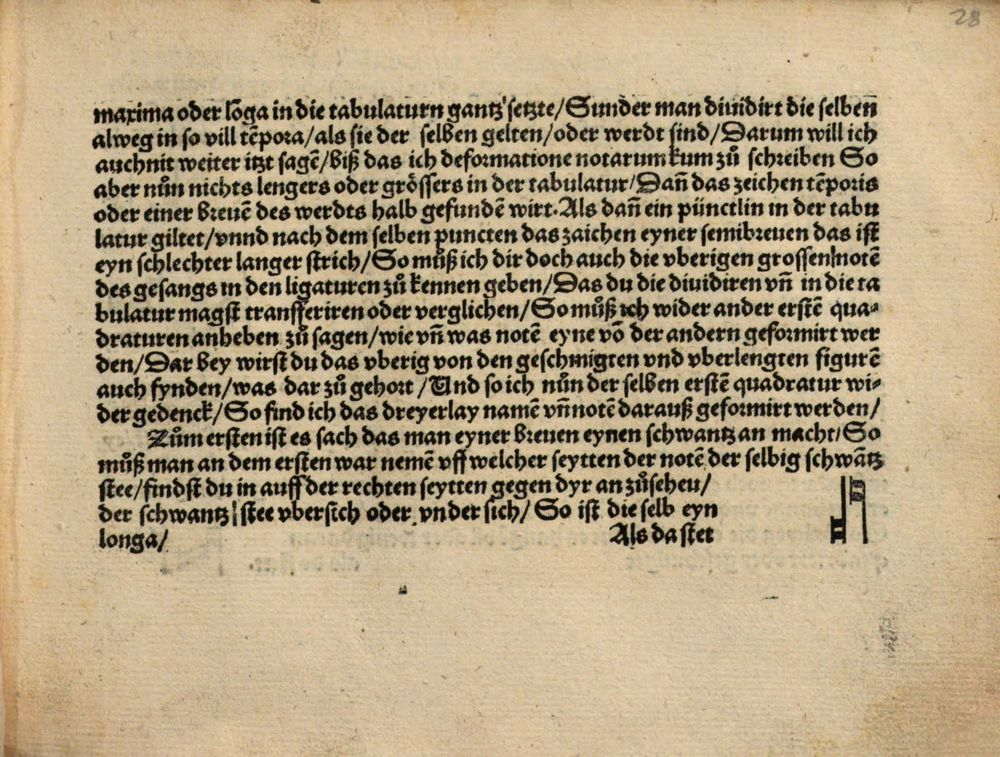 28
maxima oder lōga in die tabulaturn gantz setzte/Sunder man dividirt die selben
alweg in so vill tēpora/als sie der selben gelten/oder werdt sind/Darum will ich
auchnit weiter itzt sagē/biß das ich deformatione notarum kum zů schreiben So
aber nůn nichts lengers oder grössers in der tabulatur/Dañ das zeichen tēporis
oder einer breuē des werdts halb gefundē wirt.Als dañ ein pünctlin in der tabu
latur giltet/vnnd nach dem selben puncten das zaichen eyner semibreuen das ist
eyn schlechter langer strich/So můß ich dir doch auch die vberigen grossen notē
des gesangs in den ligaturen zů kennen geben/Das du die dividiren vñ in die ta
bulatur magst transferiren oder verglichen/So můß ich wider ander erstē qua-
draturen anheben zů sagen/wie vñ was notē eyne vō der andern geformirt wer
den/Dar bey wirst du das vberig von den geschmigten vnd vberlengten figurē
auch fynden/was dar zů gehort/Und so ich nůn der selben erstē quadratur wi-
der gedenck/So find ich das dreyerlay namē vñ notē darauß geformirt werden/
Zům ersten ist es sach das man eyner breuen eynen schwantz an macht/So
můß man an dem ersten war nemē vff welcher seytten der notē der selbig schwātz
stee/findst du in auff der rechten seytten gegen dyr an zůseheu/
der schwantz stee vbersich oder vnder sich/ So ist die selb eyn
longa/ Als da stet